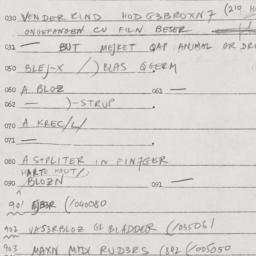 030 VENDER KIND HODG3BROXN7 (219
ONGEFANGEN CU FILN BESER
031 — BUT MEJKET QAP ANIMAL OR DR
050 BLEJ-X /)BLAS QGERM
060 A BLOZ 061 —
062 — )-STRUP
070 A KREC/L/
071 —
080 A SPLITER IN FIN7GER
HARTE HAUT/
090 BLOZN 091 —
901 (/040080
902 VAS3RBLOZ GL BLADDER (/035061
903 MAXN MIDI RUD3RS (342 (/005050